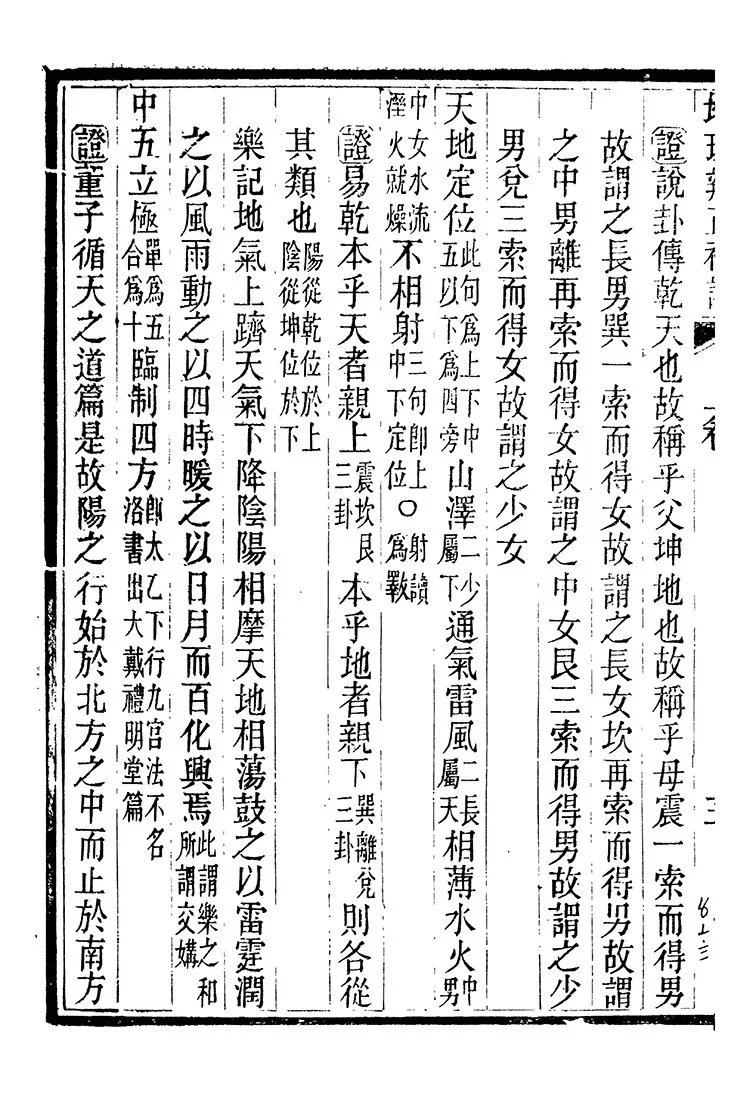 證說卦傳乾天也故稱乎父坤地也故稱乎母震一索而得男
故謂之長男巽一索而得女故謂之長女坎再索而得男故謂
之中男離再索而得女故謂之中女艮三索而得男故謂之少
男兌三索而得女故謂之少女
天地定位此句爲上下中五以下爲四旁山澤二少屬下通氣雷風二長屬天相薄水火中男
中女水流溼火就燥不相射三句卽上中下定位〇射讀爲斁
證易乾本乎天者親上震坎艮三卦本乎地者親下巽離兌三卦則各從
其類也陽從乾位於上陰從坤位於下
樂記地氣上躋天氣下降陰陽相摩天地相蕩鼓之以雷霆潤
之以風雨動之以四時暖之以日月而百化興焉此謂樂之和所謂交媾
中五立極單爲五合爲十臨制四方卽太乙下行九宮法不名洛書出大戴禮明堂篇
證董子循天之道篇是故陽之行始於北方之中而止於南方